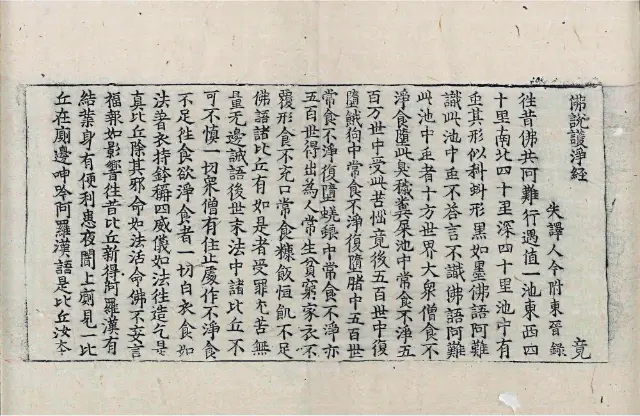 佛說護淨經
失譯人今附東晉錄 竟
往昔佛共阿難行遇值一池東西四
十里南北四十里深四十里池中有
虫其形似科蚪形黑如墨佛語阿難
識此池中虫不答言不識佛語阿難
此池中虫者十方世界大衆僧食不
淨食墮此臭穢糞屎池中常食不淨五
百万世中受此苦惱竟後五百世中復
墮餓狗中常食不淨復墮豬中五百世
常食不淨復墮蜣蜋中常食不淨亦
五百世得出為人常生貧窮家衣不
覆形食不充口常食糠飯恒飢不足
佛語諸比丘有如是者受罪克苦無
量无邊誡語後世末法中諸比丘不
可不慎一切衆僧有住止處作不淨食
不足往食欲淨食者一切白衣食如
法著衣持鉢稱四威儀如法往造乞是
真比丘除其邪命如法活命佛不妄言
福報如影響往昔比丘新得阿羅漢有
結業身有便利患夜闇上廁見一比
丘在廁邊呻吟阿羅漢語是比丘汝本